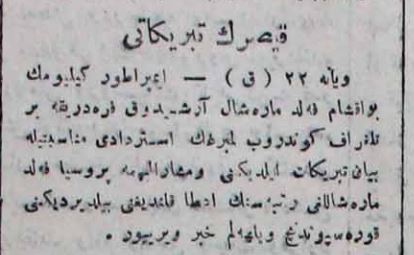 قیصرك تبریكاتی
ویانه ۲۲ (ق) — ایمپراطور كیلیومك
بواقشام فلد مارەشال آرشیدوق فرەدریقه بر
تلغراف كوندروب لمبرغك استردادی مناسبتیله
بیان تبریكات ایلدیكنی ومشارالیهه پروسیا فلد
مارەشاللغی رتبه‌سنك اعطا قلندیغنی بیلدیردیكنی
قورەسپوندنچ ویانه‌لم خبر ویرییور .